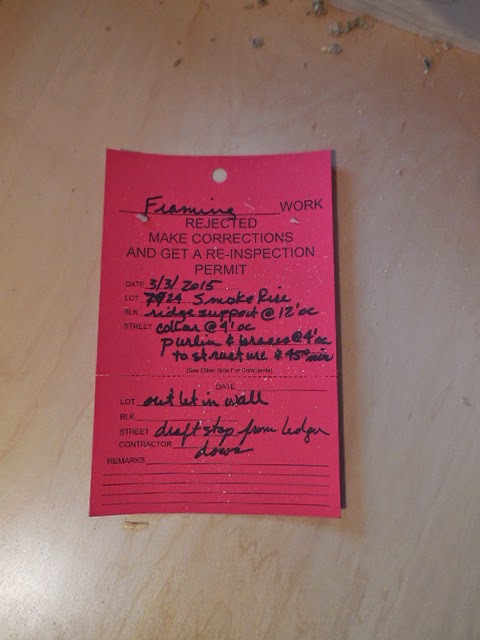 Framing WORK
REJECTED
MAKE CORRECTIONS
AND GET A RE-INSPECTION
PERMIT
DATE 3/3/2015
LOT 7924 Smoke Rise
BLK. ridge support @ 12'oc
STREET collar @ 4'oc
purlin & braces @ 4'oc
to structure & 45° min
(See Other Side For Comments)
DATE
LOT outlet in wall
BLK.
STREET draft stop from ledger
CONTRACTOR down
REMARKS